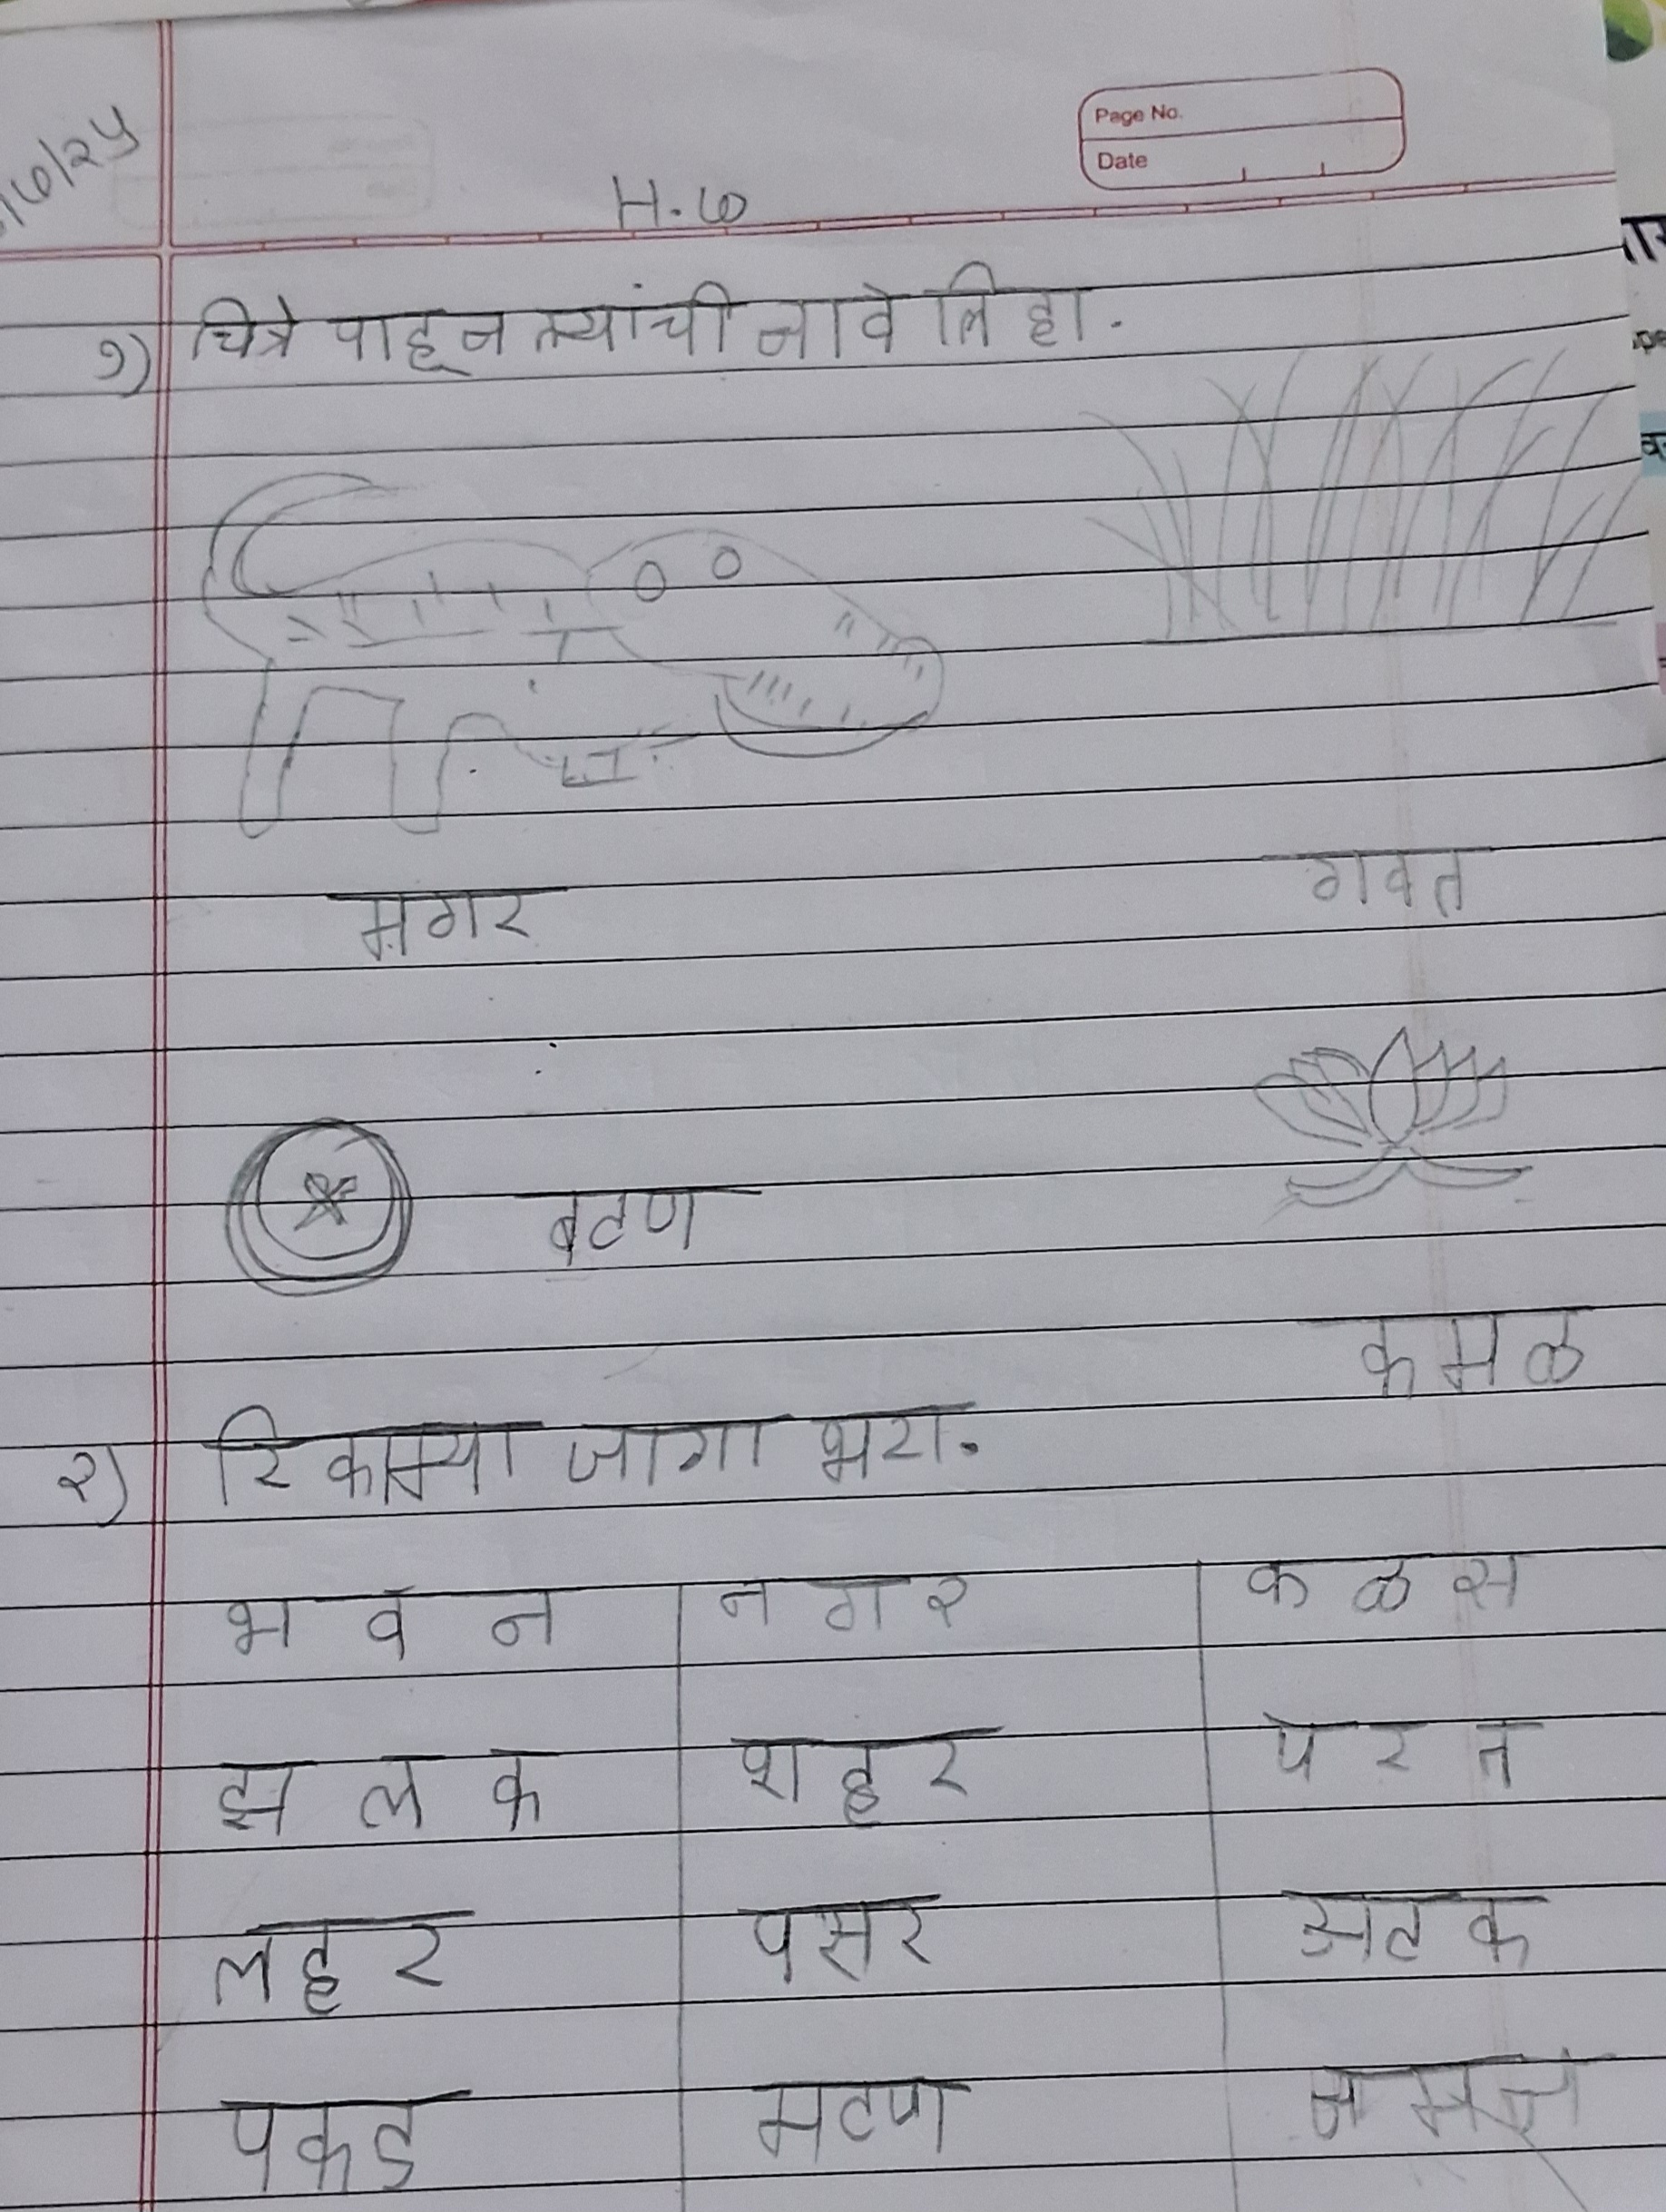 /७/२५
Page No.
Date
H.W
१) चित्रे पाहून त्यांची नावे लिहा.
मगर गवत
बटण
कमळ
२) रिकाम्या जागा भरा.
भ व न न ग र क ळ स
झ ल क शहर प र त
लहर पसर अटक
पकड मटण